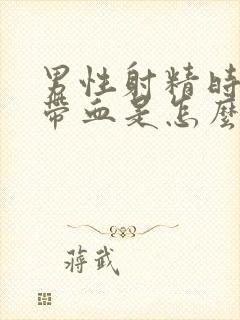 男性射精時
帶血是怎麼
蔣武